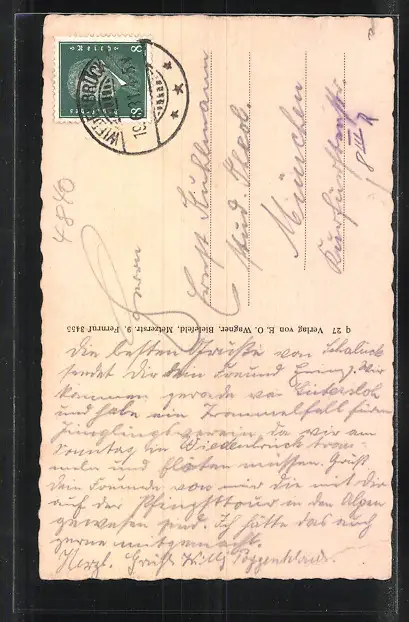 8 8
WIEDENBRÜCK
4840
Herrn
Ernst Kuhlmann
stud. Theol.
München
Kurfürstenstr.
8 III r
q 27 Verlag von E. O. Wagner, Bielefeld, Metzerstr. 9, Fernruf 3455
Die besten Grüße von
sendet Dir dein Freund Heinz. Wir
kommen gerade von Gütersloh
und habe ein Trommelfell für'n
Jünglingsverein da wir am
Sonntag in Wiedenbrück trom-
meln und flöten müssen. Grüß
dein Freunde von mir die mit dir
auf der Pfingsttour in den Alpen
gewesen sind. Ich hätte das auch
gerne mitgemacht.
Herzl. Grüße Willy Poggenklas